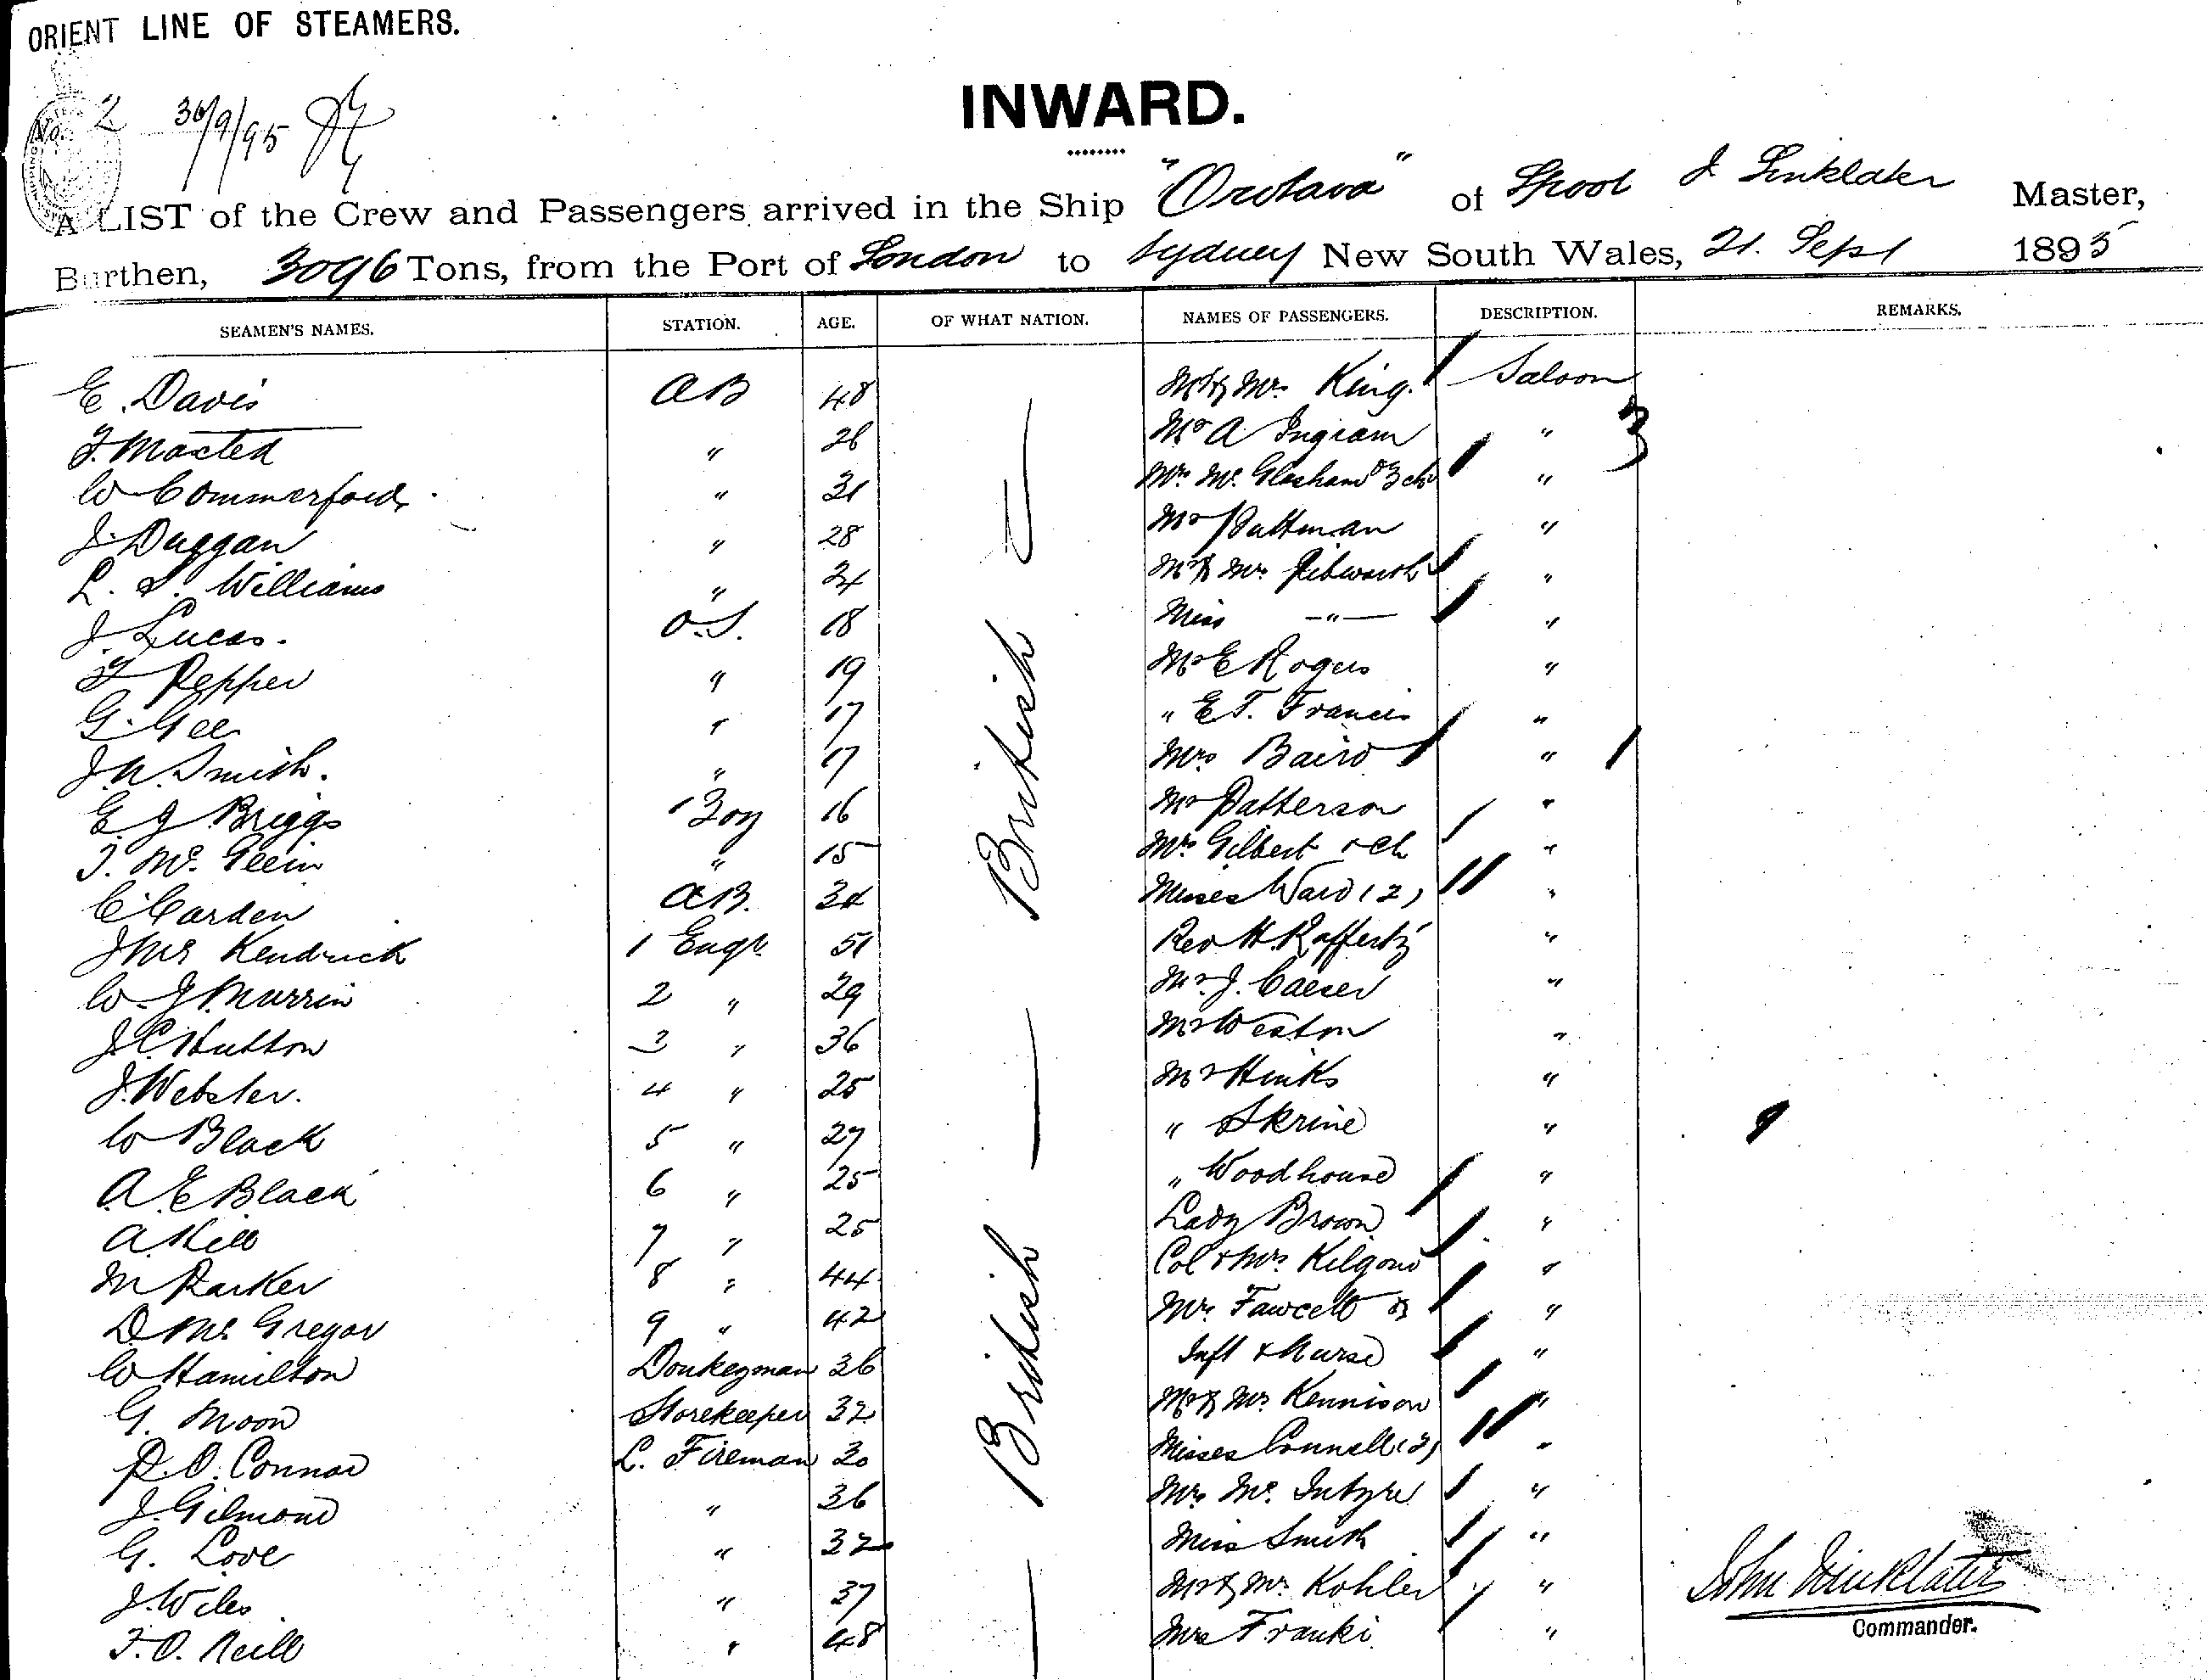 ORIENT LINE OF STEAMERS.
No. 2 30/9/95
INWARD.
A LIST of the Crew and Passengers arrived in the Ship "Orotava" of L'pool J Sinklater Master,
Burthen, 3096 Tons, from the Port of London to Sydney New South Wales, 21. Sept 1895
SEAMEN'S NAMES. STATION. AGE. OF WHAT NATION. NAMES OF PASSENGERS. DESCRIPTION. REMARKS.
E. Davis AB 48 Mr & Mrs King. Saloon
F. Macted " 26 Mr A Ingram " 3
W Commerford " 31 Mrs Mc Glashan & 3 ch "
J. Duggan " 28 Mr Pattman "
L. S. Williams " Mr & Mrs "
J. Lucas. O.S. 18 Miss — " — "
F Pepper " 19 Mr E Rogers "
G. Gee " 17 " E T. Francis "
J. N. Smith. " 17 Mrs Baird "
E J Briggs Boy 16 Mr Patterson "
J. Mc " 15 Mrs Gilbert & ch "
C. Carden AB. 34 Misses Ward (2) "
J Mc Kendrick 1 Engr 51 Rev H. Rafferty "
W J Murrin 2 " 29 Mr J. Caeser "
J C Hutton 3 " 36 Mr Weston "
J. Webster. 4 " 25 Mr Hinks "
W Black 5 " 27 " Skrine " 9
A. E Black 6 " 25 " Woodhouse "
A. 7 " 25 Lady Brown "
M Parker 8 " 44 Col & Mrs Kilgour "
D Mc Gregor 9 " 42 Mrs Fawcett & "
W Hamilton Donkeyman 36 Inft & Nurse "
G. Moon Storekeeper 32 Mr & Mrs Kennison "
P. O. Connor L. Fireman 30 Misses Connell (2) "
J. Gilmour " 36 Mrs Mc Intyre "
G. Love " 32 Miss Smith "
J. Wiles " 37 Mr & Mrs Kohler "
T. O. Neill " 48 Mrs Franki "
British
British
John Sinklater
Commander.